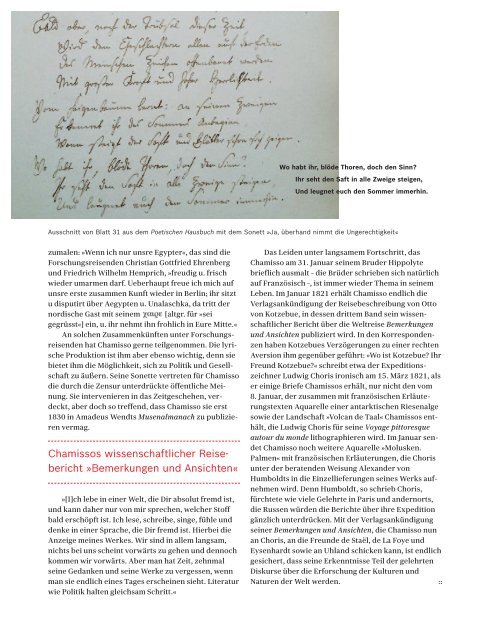 Bald aber, nach der Trübsal dieser Zeit
Wird dem Geschlechtern allen auf der Erden
Des Menschen Zeichen offenbaret werden
Mit großer Kraft und hoher Herrlichkeit.
Vom Feigenbaum lernt: an seinen Zweigen
Erkennet ihr des Sommers Anbeginn
Wenn steigt der Saft und Blätter schon sich zeigen.
Wo habt ihr, blöde Thoren, doch den Sinn?
Ihr seht den Saft in alle Zweige steigen,
Und leugnet euch den Sommer immerhin.
Wo habt ihr, blöde Thoren, doch den Sinn?
Ihr seht den Saft in alle Zweige steigen,
Und leugnet euch den Sommer immerhin.
Ausschnitt von Blatt 31 aus dem Poetischen Hausbuch mit dem Sonett »Ja, überhand nimmt die Ungerechtigkeit«
zumalen: »Wenn ich nur unsre Egypter«, das sind die
Forschungsreisenden Christian Gottfried Ehrenberg
und Friedrich Wilhelm Hemprich, »freudig u. frisch
wieder umarmen darf. Ueberhaupt freue ich mich auf
unsre erste zusammen Kunft wieder in Berlin; ihr sitzt
u disputirt über Aegypten u. Unalaschka, da tritt der
nordische Gast mit seinem χαιρε [altgr. für »sei
gegrüsst«] ein, u. ihr nehmt ihn frohlich in Eure Mitte.«
An solchen Zusammenkünften unter Forschungs-
reisenden hat Chamisso gerne teilgenommen. Die lyri-
sche Produktion ist ihm aber ebenso wichtig, denn sie
bietet ihm die Möglichkeit, sich zu Politik und Gesell-
schaft zu äußern. Seine Sonette vertreten für Chamisso
die durch die Zensur unterdrückte öffentliche Mei-
nung. Sie intervenieren in das Zeitgeschehen, ver-
deckt, aber doch so treffend, dass Chamisso sie erst
1830 in Amadeus Wendts Musenalmanach zu publizie-
ren vermag.
Chamissos wissenschaftlicher Reise-
bericht »Bemerkungen und Ansichten«
»[I]ch lebe in einer Welt, die Dir absolut fremd ist,
und kann daher nur von mir sprechen, welcher Stoff
bald erschöpft ist. Ich lese, schreibe, singe, fühle und
denke in einer Sprache, die Dir fremd ist. Hierbei die
Anzeige meines Werkes. Wir sind in allem langsam,
nichts bei uns scheint vorwärts zu gehen und dennoch
kommen wir vorwärts. Aber man hat Zeit, zehnmal
seine Gedanken und seine Werke zu vergessen, wenn
man sie endlich eines Tages erscheinen sieht. Literatur
wie Politik halten gleichsam Schritt.«
Das Leiden unter langsamem Fortschritt, das
Chamisso am 31. Januar seinem Bruder Hippolyte
brieflich ausmalt – die Brüder schrieben sich natürlich
auf Französisch –, ist immer wieder Thema in seinem
Leben. Im Januar 1821 erhält Chamisso endlich die
Verlagsankündigung der Reisebeschreibung von Otto
von Kotzebue, in dessen drittem Band sein wissen-
schaftlicher Bericht über die Weltreise Bemerkungen
und Ansichten publiziert wird. In den Korresponden-
zen haben Kotzebues Verzögerungen zu einer rechten
Aversion ihm gegenüber geführt: »Wo ist Kotzebue? Ihr
Freund Kotzebue?« schreibt etwa der Expeditions-
zeichner Ludwig Choris ironisch am 15. März 1821, als
er einige Briefe Chamissos erhält, nur nicht den vom
8. Januar, der zusammen mit französischen Erläute-
rungstexten Aquarelle einer antarktischen Riesenalge
sowie der Landschaft »Volcan de Taal« Chamissos ent-
hält, die Ludwig Choris für seine Voyage pittoresque
autour du monde lithographieren wird. Im Januar sen-
det Chamisso noch weitere Aquarelle »Molusken.
Palmen« mit französischen Erläuterungen, die Choris
unter der beratenden Weisung Alexander von
Humboldts in die Einzellieferungen seines Werks auf-
nehmen wird. Denn Humboldt, so schrieb Choris,
fürchtete wie viele Gelehrte in Paris und andernorts,
die Russen würden die Berichte über ihre Expedition
gänzlich unterdrücken. Mit der Verlagsankündigung
seiner Bemerkungen und Ansichten, die Chamisso nun
an Choris, an die Freunde de Staël, de La Foye und
Eysenhardt sowie an Uhland schicken kann, ist endlich
gesichert, dass seine Erkenntnisse Teil der gelehrten
Diskurse über die Erforschung der Kulturen und
Naturen der Welt werden. ::